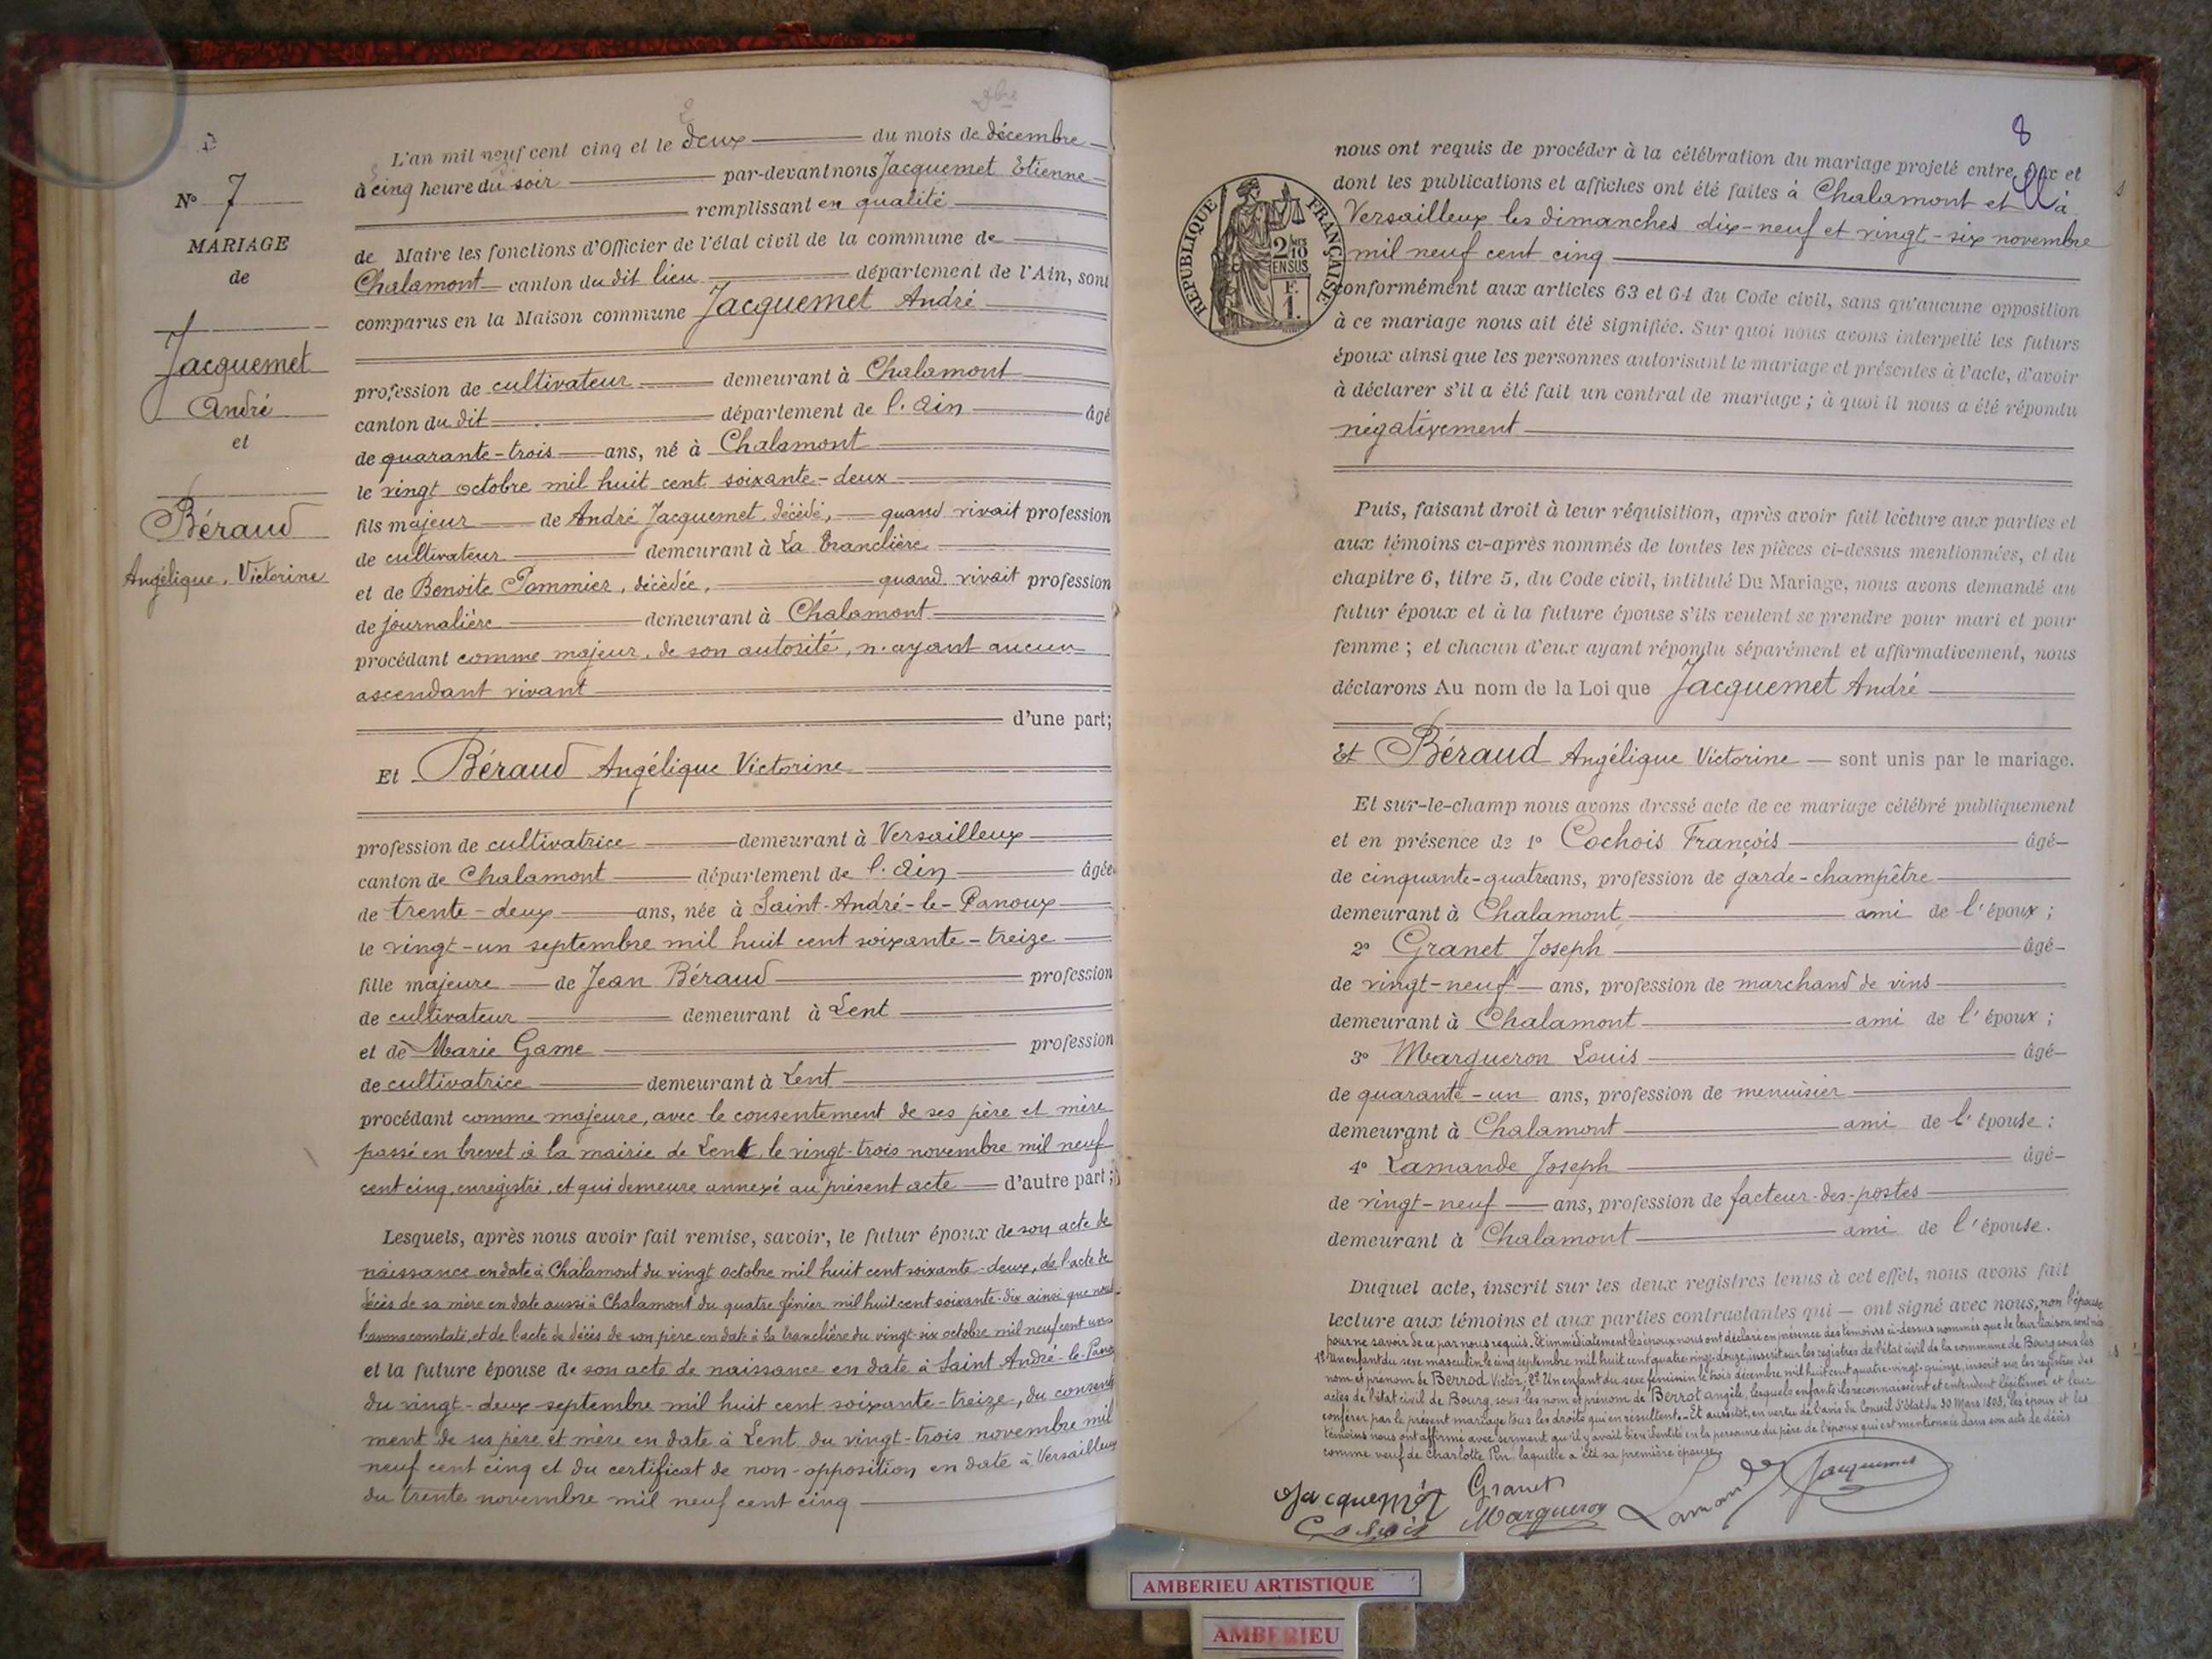 Dbre
2
N° 7
MARIAGE
de
Jacquemet
André
et
Béraud
Angélique, Victorine
L'an mil neuf cent cinq et le deux du mois de décembre
à cinq heure du soir par-devant nous Jacquemet Etienne
remplissant en qualité
de Maire les fonctions d'Officier de l'état civil de la commune de
Chalamont canton du dit lieu département de l'Ain, sont
comparus en la Maison commune Jacquemet André
profession de cultivateur demeurant à Chalamont
canton du dit département de l'Ain âgé
de quarante-trois ans, né à Chalamont
le vingt octobre mil huit cent soixante-deux
fils majeur de André Jacquemet, décédé, quand vivait profession
de cultivateur demeurant à La Tranclière
et de Benoite Pommier, décédée, quand vivait profession
de journalière demeurant à Chalamont
procédant comme majeur, de son autorité, n'ayant aucun
ascendant vivant
d'une part;
Et Béraud Angélique Victorine
profession de cultivatrice demeurant à Versailleux
canton de Chalamont département de l'Ain âgée
de trente-deux ans, née à Saint-André-le-Panoux
le vingt-un septembre mil huit cent soixante-treize
fille majeure de Jean Béraud profession
de cultivateur demeurant à Lent
et de Marie Game profession
de cultivatrice demeurant à Lent
procédant comme majeure, avec le consentement de ses père et mère
passé en brevet à la mairie de Lent, le vingt-trois novembre mil neuf
cent cinq, enregistré, et qui demeure annexé au présent acte d'autre part;
Lesquels, après nous avoir fait remise, savoir, le futur époux de son acte de
naissance en date à Chalamont du vingt octobre mil huit cent soixante-deux, de l'acte de
décès de sa mère en date aussi à Chalamont du quatre février mil huit cent soixante-dix ainsi que nous
l'avons constaté, et de l'acte de décès de son père en date à La Tranclière du vingt-six octobre mil neuf cent un
et la future épouse de son acte de naissance en date à Saint André-le-Panoux
du vingt-deux septembre mil huit cent soixante-treize, du consente
ment de ses père et mère en date à Lent du vingt-trois novembre mil
neuf cent cinq et du certificat de non-opposition en date à Versailleux
du trente novembre mil neuf cent cinq
8
nous ont requis de procéder à la célébration du mariage projeté entre eux et
dont les publications et affiches ont été faites à Chalamont et à
Versailleux les dimanches dix-neuf et vingt-six novembre
mil neuf cent cinq
RÉPUBLIQUE FRANÇAISE
2/10 EN SUS
F. 1.
conformément aux articles 63 et 64 du Code civil, sans qu'aucune opposition
à ce mariage nous ait été signifiée. Sur quoi nous avons interpellé les futurs
époux ainsi que les personnes autorisant le mariage et présentes à l'acte, d'avoir
à déclarer s'il a été fait un contrat de mariage; à quoi il nous a été répondu
négativement
Puis, faisant droit à leur réquisition, après avoir fait lecture aux parties et
aux témoins ci-après nommés de toutes les pièces ci-dessus mentionnées, et du
chapitre 6, titre 5, du Code civil, intitulé Du Mariage, nous avons demandé au
futur époux et à la future épouse s'ils veulent se prendre pour mari et pour
femme; et chacun d'eux ayant répondu séparément et affirmativement, nous
déclarons Au nom de la Loi que Jacquemet André
Et Béraud Angélique Victorine sont unis par le mariage.
Et sur-le-champ nous avons dressé acte de ce mariage célébré publiquement
et en présence de 1° Cochois François âgé
de cinquante-quatre ans, profession de garde-champêtre
demeurant à Chalamont ami de l'époux;
2° Granet Joseph âgé
de vingt-neuf ans, profession de marchand de vins
demeurant à Chalamont ami de l'époux;
3° Margueron Louis âgé
de quarante-un ans, profession de menuisier
demeurant à Chalamont ami de l'épouse:
4° Lamande Joseph âgé
de vingt-neuf ans, profession de facteur-des-postes
demeurant à Chalamont ami de l'épouse.
Duquel acte, inscrit sur les deux registres tenus à cet effet, nous avons fait
lecture aux témoins et aux parties contractantes qui ont signé avec nous, non l'épouse
pour ne savoir de ce par nous requis. Et immédiatement les époux nous ont déclaré en présence des témoins ci-dessus nommés que de leur liaison sont nés
1° Un enfant du sexe masculin le cinq septembre mil huit cent quatre-vingt-douze, inscrit sur les registres de l'état civil de la commune de Bourg sous les
nom et prénom de Berrod Victor; 2° Un enfant du sexe féminin le trois décembre mil huit cent quatre-vingt-quinze, inscrit sur les registres des
actes de l'état civil de Bourg, sous les nom et prénom de Berrot Angèle, lesquels enfants ils reconnaissent et entendent légitimer et leur
conférer par le présent mariage tous les droits qui en résultent. Et aussitôt, en vertu de l'avis du Conseil d'Etat du 30 Mars 1808, les époux et les
témoins nous ont affirmé avec serment qu'il y avait bien identité en la personne du père de l'époux qui est mentionnée dans son acte de décès
comme veuf de Charlotte Pin, laquelle a été sa première épouse.
Jacquemet Granet Lamande Jacquemet
Cochois Margueron
AMBERIEU ARTISTIQUE
AMBERIEU